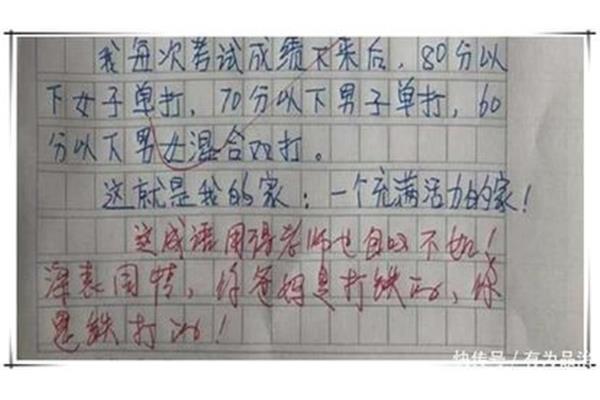 我每次考试成绩下来后，80分以
下女子单打，70分以下男子单打，60
分以下男女混合双打。
这就是我的家：一个充满活力的家！
这成语用得老师也自叹不如！
深表同情，你爸妈是打铁的，你
是铁打的！
快传号/有为品治